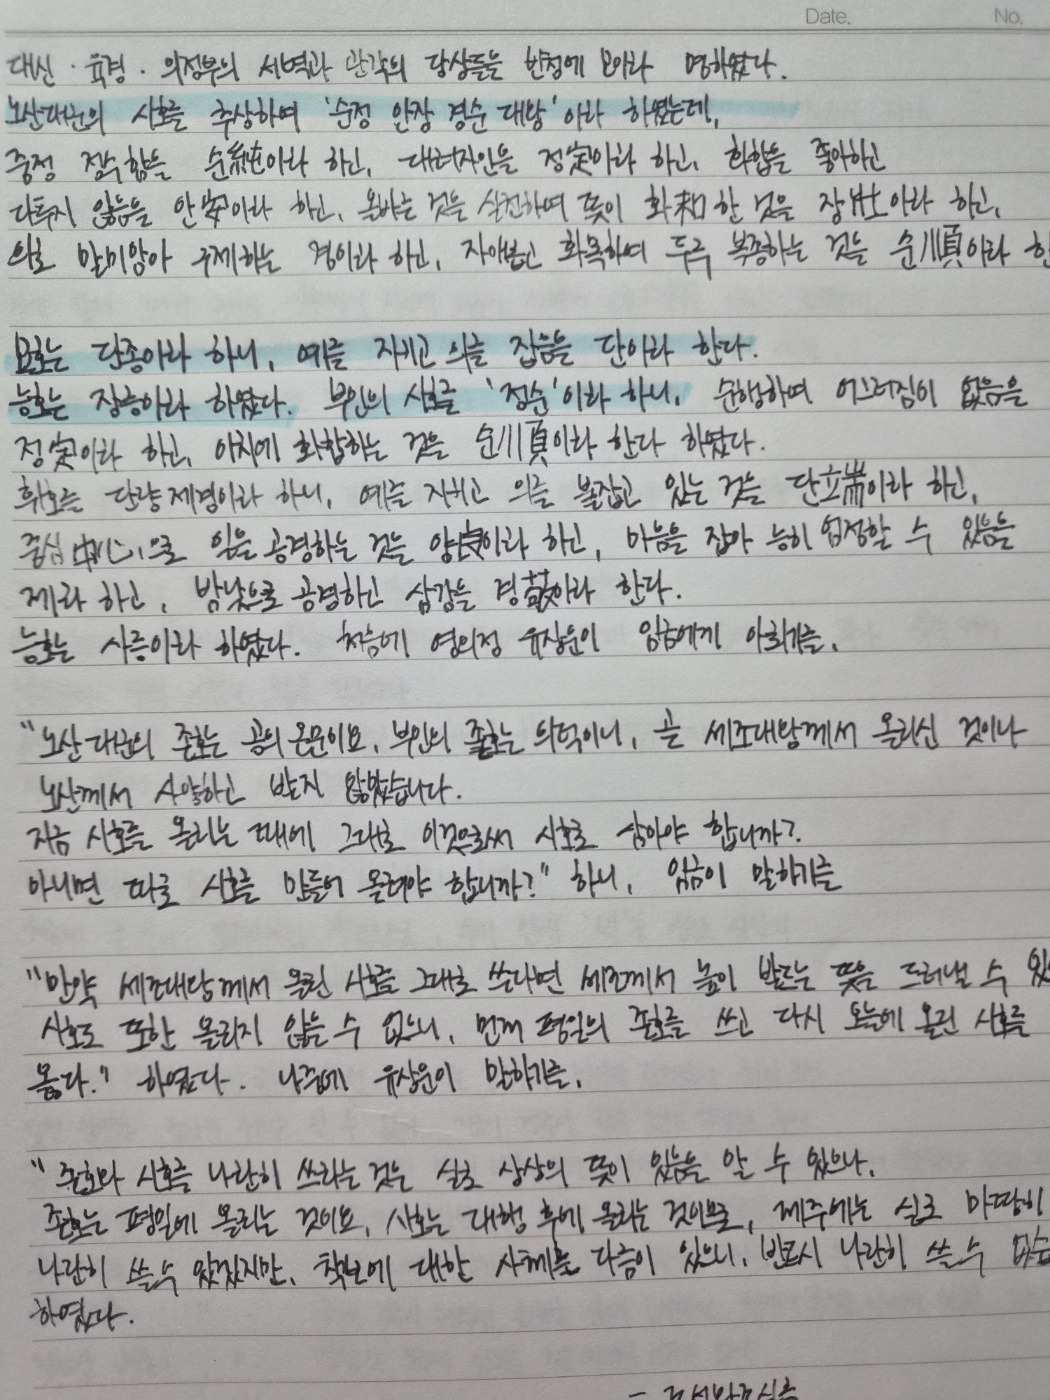 Date. No.
대신 · 육경 · 의정부의 서벽과 관각의 당상들을 빈청에 모이라 명하였다.
노산대군의 시호를 추상하여 '순정 안장 경순 대왕'이라 하였는데,
중정 정수함을 순純이라 하고, 대려자인을 정定이라 하고, 화합을 좋아하고
다투지 않음을 안安이라 하고, 올바른 것을 실천하여 뜻이 화和한 것을 장壯이라 하고,
의로 말미암아 구제하는 경이라 하고, 자애롭고 화목하여 두루 복종하는 것을 순順이라 한
묘호는 단종이라 하니, 예를 지키고 의를 잡음을 단이라 한다.
능호는 장릉이라 하였다. 부인의 시호를 '정순'이라 하니, 순행하며 어그러짐이 없음을
정定이라 하고, 이치에 화합하는 것을 순順이라 한다 하였다.
휘호를 단량제경이라 하니, 예를 지키고 의를 붙잡고 있는 것을 단端이라 하고,
중심中心으로 일을 공경하는 것을 량良이라 하고, 마음을 잡아 능히 엄정할 수 있음을
제라 하고, 밤낮으로 공경하고 삼감을 경이라 한다.
능호는 사릉이라 하였다. 처음에 영의정 유상운이 임금에게 아뢰기를,
"노산대군의 존호는 공의온문이요, 부인의 존호는 의덕이니, 곧 세조대왕께서 올리신 것이나
노산께서 사양하고 받지 않았습니다.
지금 시호를 올리는 때에 그대로 이것으로써 시호로 삼아야 합니까?
아니면 따로 시호를 만들어 올려야 합니까?" 하니, 임금이 말하기를
"만약 세조대왕께서 올린 시호를 그대로 쓴다면 세조께서 높이 받드는 뜻을 드러낼 수 있
시호도 또한 올리지 않을 수 없으니, 먼저 평일의 존호를 쓰고 다시 오늘에 올린 시호를
옳다." 하였다. 나중에 유상운이 말하기를,
"존호와 시호를 나란히 쓰라는 것은 실로 상상의 뜻이 있음을 알 수 있으나,
존호는 평일에 올리는 것이요, 시호는 대행 후에 올리는 것이므로, 제주에는 실로 마땅히
나란히 쓸 수 있겠지만, 책보에 대한 사체는 다름이 있으니, 반드시 나란히 쓸 수 없습
하였다.
- 조선왕조실록